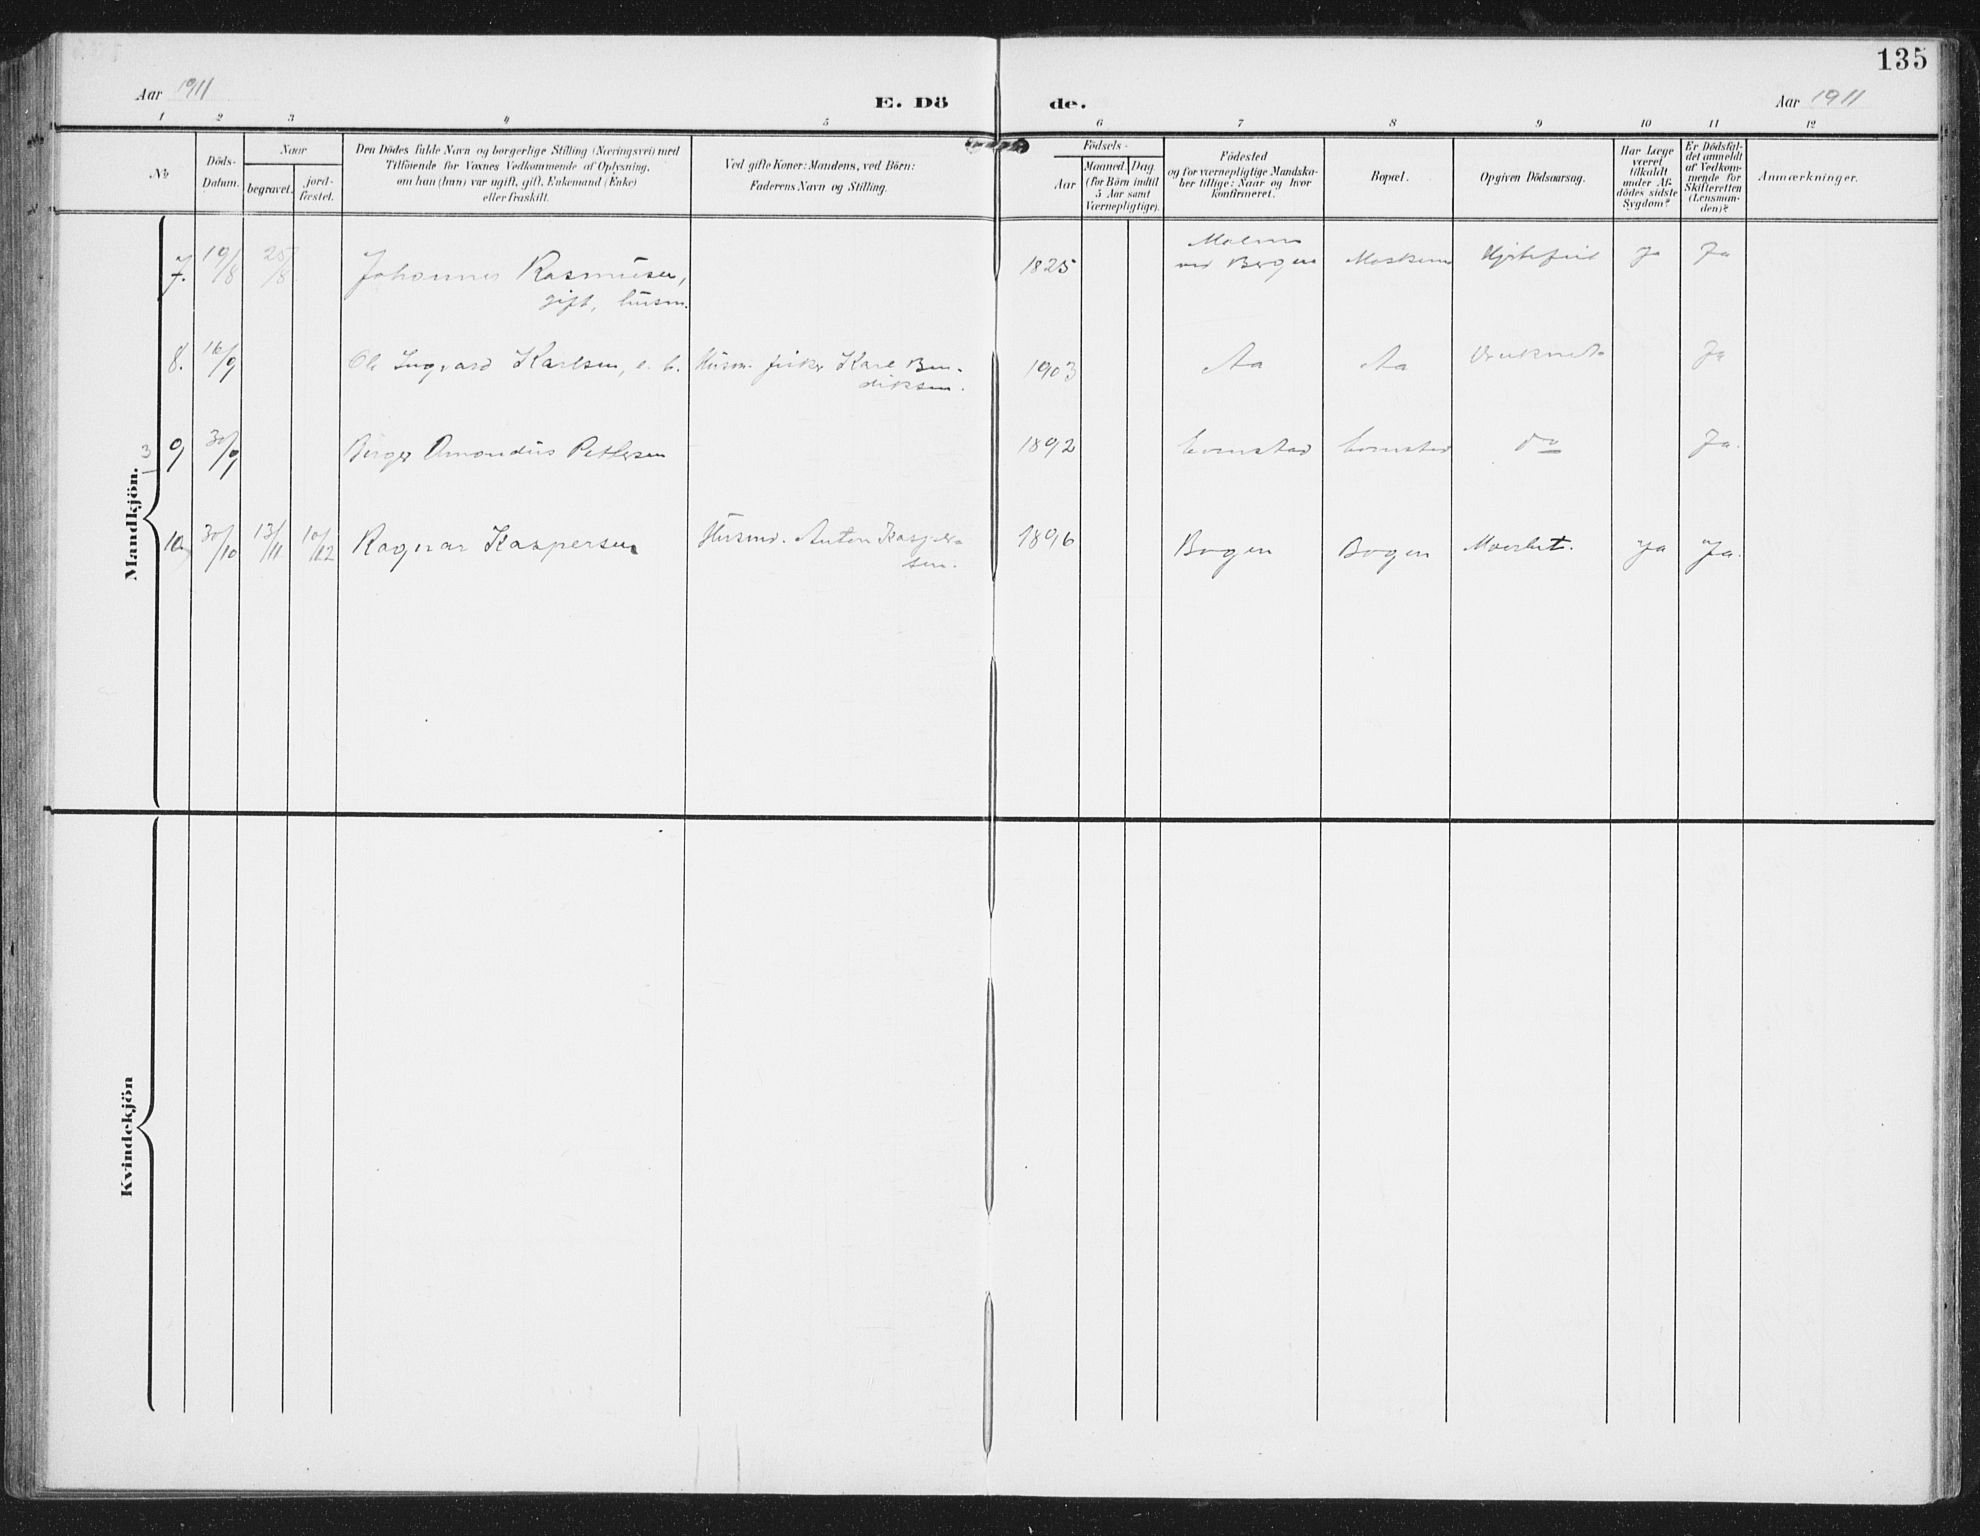 135
Aar 1911
E. Dö
de.
Aar 1911
1 2 3 4 5 6 7 8 9 10 11 12
No
Döds-
Datum.
Naar
begravet.
jord-
fæstet.
Den Dödes fulde Navn og borgerlige Stilling (Næringsvei) med
Tilföiende for Voxnes Vedkommende af Oplysning,
om han (hun) var ugift, gift, Enkemand (Enke)
eller fraskilt.
Ved gifte Koner: Mandens, ved Börn:
Faderens Navn og Stilling.
Födsels-
Aar
Maaned. Dag.
(for Börn indtil
5 Aar samt
Værnepligtige).
Födested
og for værnepligtige Mandska-
ber tillige: Naar og hvor
konfirmeret.
Bopæl.
Opgiven Dödsaarsag.
Har Læge
været
tilkaldt
under Af-
dödes sidste
Sygdom?
Er Dödsfal-
det anmeldt
af Vedkom-
mende for
Skifteretten
(Lensman-
den)?
Anmærkninger.
Mandkjön.
7. 19/8 25/8 Johannes Rasmusen,
gift, husm.
1825
ved Bergen
Hjertefeil Ja Ja
8. 16/9 Ole Ingvard Karlsen, e. b. Husm. fisker Karl Ben-
diksen.
1903 Aa Aa Ja
3
9 30/9 Birger Amandus Pettersen 1892 do Ja.
10 30/10 13/11 10/12 Ragnar Kaspersen Husmd. Anton Kasper-
sen.
1896 Bogen Bogen Ja Ja.
Kvindekjön